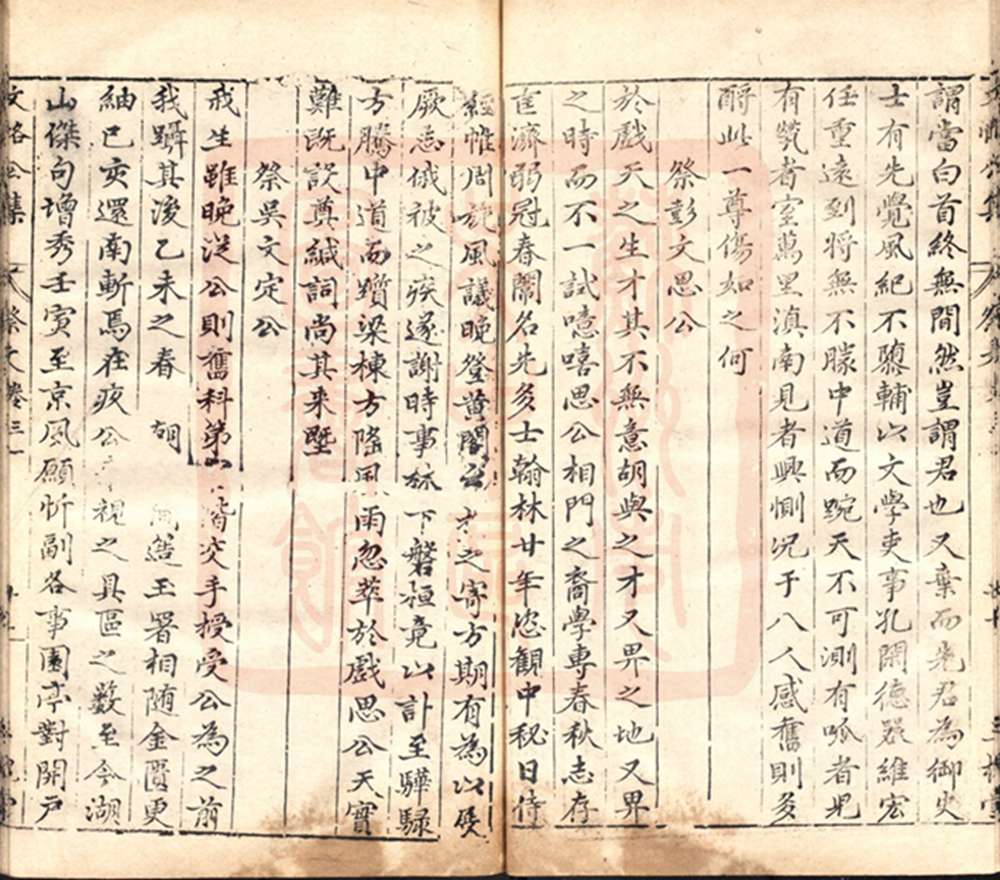 謂當白首終無間然豈謂君也又棄而先君為御史
士有先覺風紀不隳輔以文學吏事孔閑德器維宏
任重遠到將無不朦中道而踠天不可測有呱者兒
有煢者室萬里滇南見者興惻況于八人感奮則多
酹此一尊傷如之何
祭彭文思公
於戲天之生才其不無意胡與之才又畀之地又畀
之時而不一試噫嘻思公相門之裔學專春秋志存
匡濟弱冠春闈名先多士翰林廿年恣觀中秘日侍
經帷周旋風議晚登黃閣 才之寄方期有為以展
厥志俄被之疾遂謝時事林下磐桓竟以訃至驊騄
方騰中道而躓梁棟方隆風雨忽萃於戲思公天實
難既設奠緘詞尚其來曁
祭吳文定公
我生雖晚從公則舊科第 階交手授受公為之前
我躡其後乙未之春 胡 玉署相随金匱更
紬己亥還南斬焉在疚公 視之具區之藪至今湖
山傑句增秀壬寅至京風願忻副各事園亭對開戶
文恪公集 祭文卷三